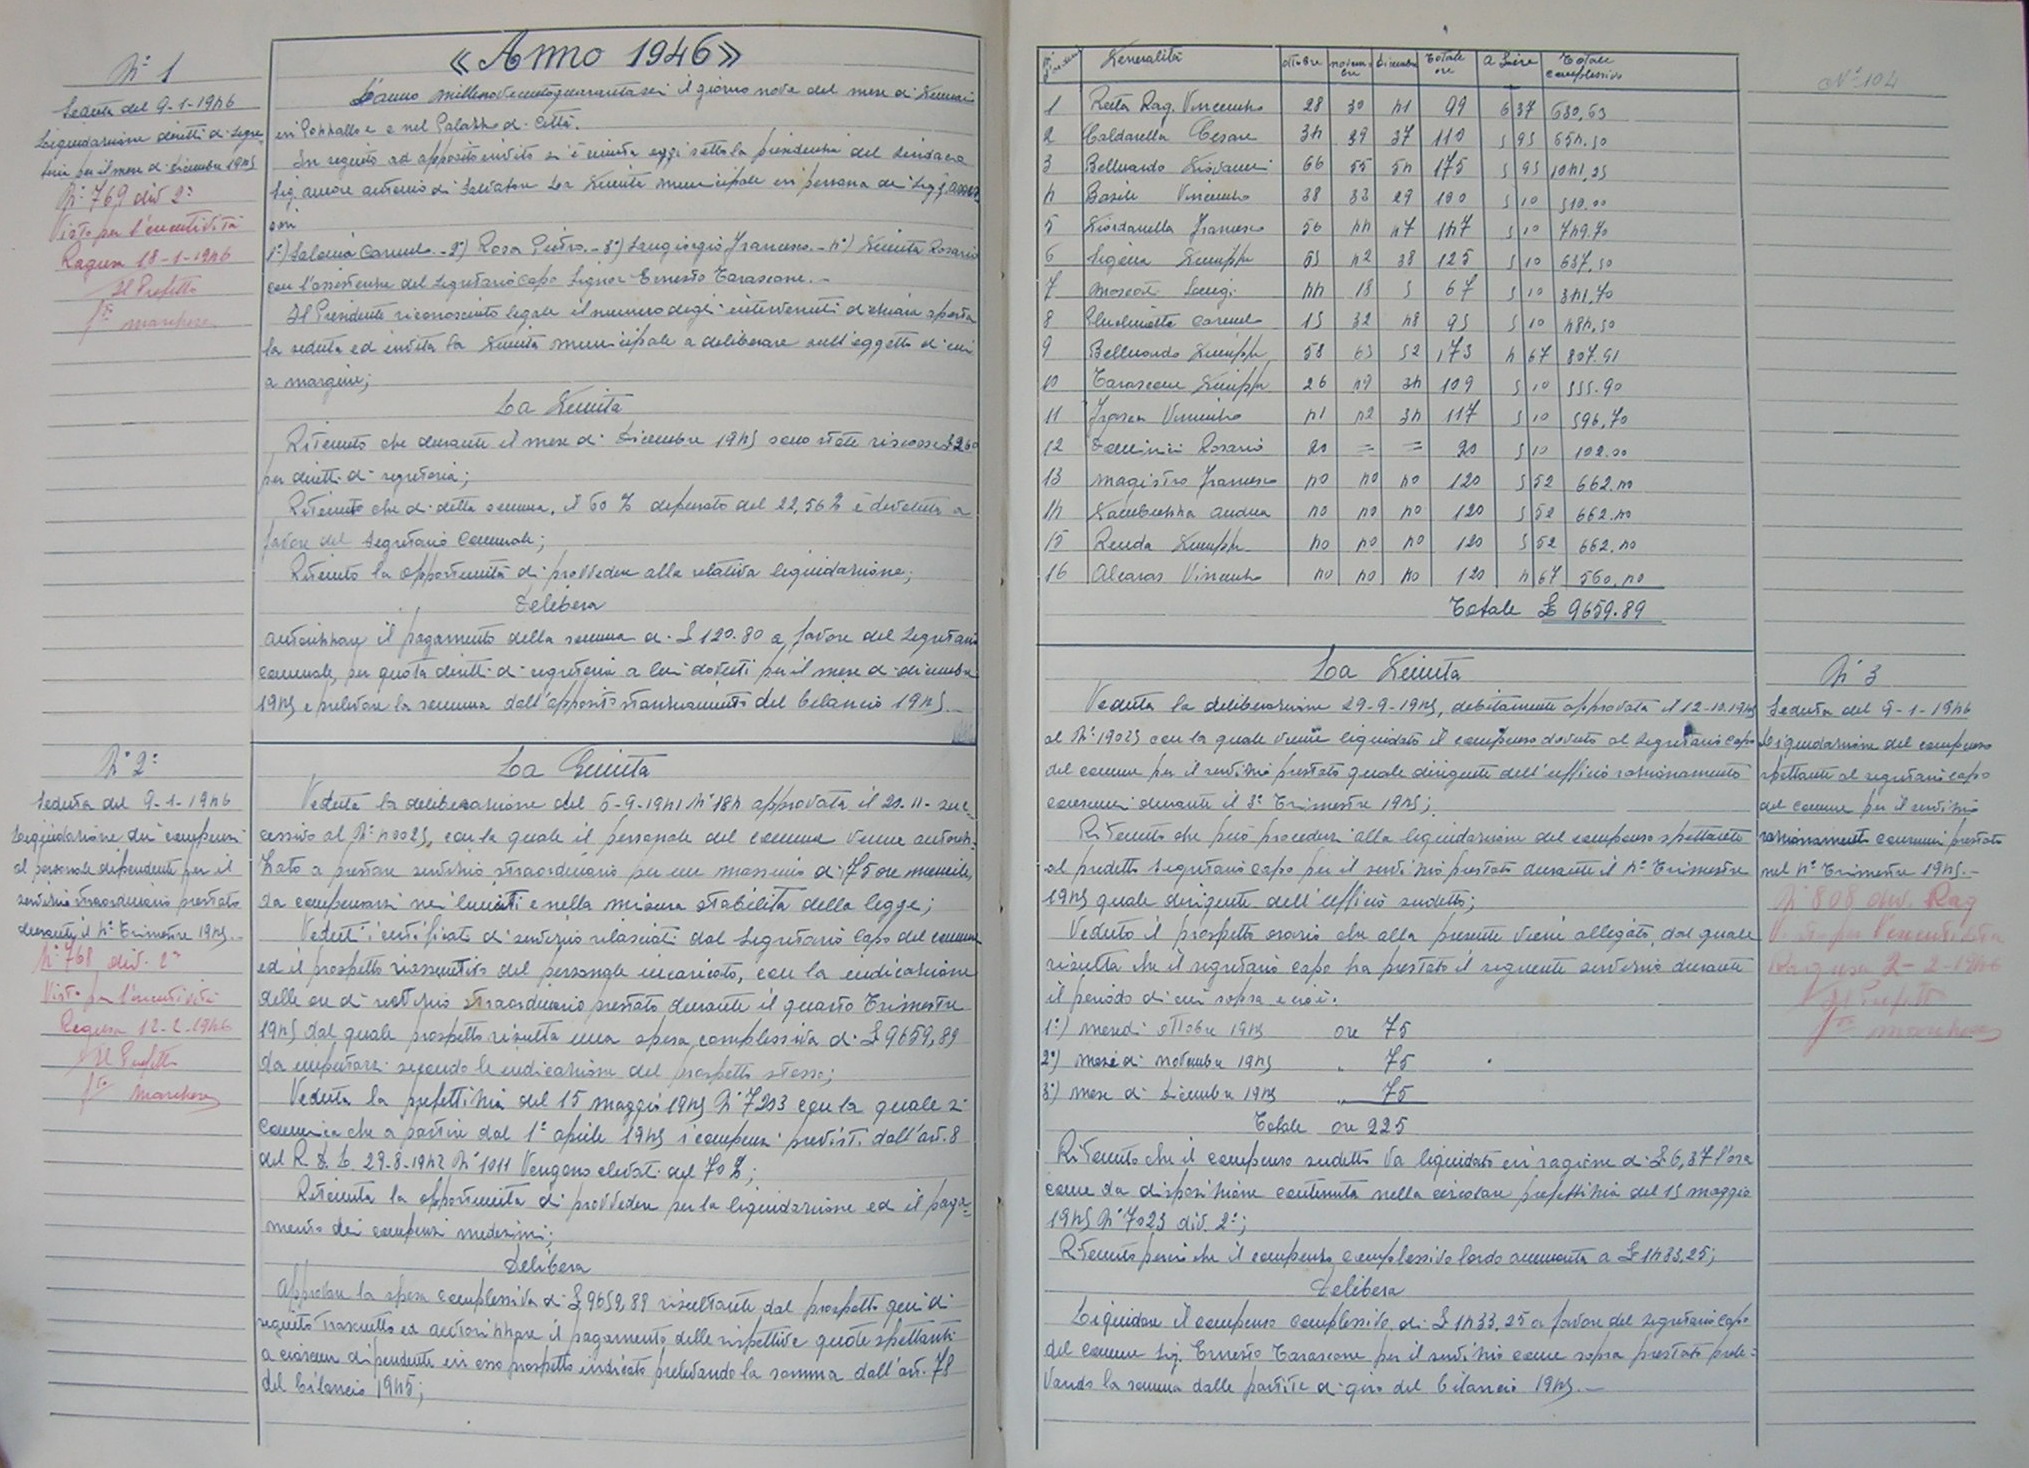 « Anno 1946 »
N° 1
Seduta del 9-1-1946
Liquidazione diritti di segre-
teria per il mese di dicembre 1945
N° 769 div 2ª
Visto per l'esecutività
Ragusa 18-1-1946
Il Prefetto
fto Marchese
L'anno millenovecentoquarantasei il giorno nove del mese di Gennaio
in Pozzallo e nel Palazzo di Città.
In seguito ad apposito invito si è riunita oggi sotto la presidenza del Sindaco
Sig. Antonio di Salvatore la Giunta municipale in persona dei Sigg. Assess
ori
1°) Carmelo - 2°) Rosa Pietro - 3°) Sangiorgio Francesco - 4°) Giunta Rosario
con l'assistenza del Segretario Capo Signor Ernesto Tarascone. -
Il Presidente riconosciuto legale il numero degli intervenuti dichiara aperta
la seduta ed invita la Giunta municipale a deliberare sull'oggetto di cui
a margine;
La Giunta
Ritenuto che durante il mese di Dicembre 1945 sono state riscosse £ 260
per diritti di segreteria;
Ritenuto che di detta somma, il 60 % depurato del 22,564 è devoluto a
favore del Segretario Comunale;
Ritenuto la opportunità di provvedere alla relativa liquidazione;
Delibera
autorizzare il pagamento della somma di £ 120.80 a favore del Segretario
comunale, per quota diritti di segreteria a lui dovuti per il mese di dicembre
1945 e prelevare la somma dall'apposito stanziamento del bilancio 1945. -
N° 2°
Seduta del 9-1-1946
Liquidazione dei compensi
al personale dipendente per il
servizio straordinario prestato
durante il 4° Trimestre 1945. -
N° 768 div. 2ª
Visto per l'esecutività
Ragusa 12-2-1946
Il Prefetto
fto Marchese
La Giunta
Veduta la deliberazione del 6-9-1941 N° 184 approvata il 20-11- suc-
cessivo al N° 40025, con la quale il personale del comune venne autoriz-
zato a prestare servizio straordinario per un massimo di 75 ore mensili,
da compensarsi nei limiti e nella misura stabilita della legge;
Veduti i certificati di servizio rilasciati dal Segretario Capo del comune
ed il prospetto riassuntivo del personale incaricato, con la indicazione
delle ore di servizio straordinario prestato durante il quarto Trimestre
1945 dal quale prospetto risulta una spesa complessiva di £ 9659,89
da imputarsi secondo le indicazioni del prospetto stesso;
Veduta la prefettizia del 15 maggio 1945 N° 7203 con la quale si
comunica che a partire dal 1° aprile 1945 i compensi previsti dall'art. 8
del R.D.L. 29-8-1942 N° 1011 vengono elevati del 70 %;
Ritenuta la opportunità di provvedere per la liquidazione ed il paga=
mento dei compensi medesimi;
Delibera
Approvare la spesa complessiva di £ 9659,89 risultante dal prospetto qui di
seguito trascritto ed autorizzare il pagamento delle rispettive quote spettanti
a ciascun dipendente in esso prospetto indicato prelevando la somma dall'art. 78
del bilancio 1945;
N° 104
N° d'ordine Generalità ottobre novembre dicembre Totale ore a Lire Totale complessivo
1 Reita Rag. Vincenzo 28 30 41 99 6 37 630,63
2 Caldarella Cesare 34 39 37 110 5 95 654.50
3 Belluardo Giovanni 66 55 54 175 5 95 1041,25
4 Basile Vincenzo 38 33 29 100 5 10 510.00
5 Giordanella Francesco 56 44 47 147 5 10 749.70
6 Sigona Giuseppe 45 42 38 125 5 10 637.50
7 Luigi 44 18 5 67 5 10 341.70
8 Carmelo 15 32 48 95 5 10 484,50
9 Belluardo Giuseppe 58 63 52 173 4 67 807.91
10 Tarascone Giuseppe 26 49 34 109 5 10 555.90
11 Vincenzo 41 42 34 117 5 10 596.70
12 Rosario 20 = = 20 5 10 102.00
13 Magistro Francesco 40 40 40 120 5 52 662.40
14 Gambuzza Andrea 40 40 40 120 5 52 662.40
15 Renda Giuseppe 40 40 40 120 5 52 662.40
16 Alcaras Vincenzo 40 40 40 120 4 67 560.40
Totale £ 9659.89
La Giunta
Veduta la deliberazione 29-9-1945, debitamente approvata il 12-10-1945
al N° 19025 con la quale viene liquidato il compenso dovuto al Segretario Capo
del comune per il servizio prestato quale dirigente dell'ufficio razionamento
consumi durante il 3° Trimestre 1945;
Ritenuto che può procedersi alla liquidazione del compenso spettante
al predetto Segretario Capo per il servizio prestato durante il 4° Trimestre
1945 quale dirigente dell'ufficio suddetto;
Veduto il prospetto orario che alla presente viene allegato, dal quale
risulta che il segretario capo ha prestato il seguente servizio durante
il periodo di cui sopra e cioè:
1°) mese di ottobre 1945 ore 75
2°) mese di novembre 1945 " 75
3°) mese di dicembre 1945 " 75
Totale ore 225
Ritenuto che il compenso suddetto va liquidato in ragione di £ 6,37 l'ora
come da disposizione contenuta nella circolare prefettizia del 15 maggio
1945 N° 7023 div. 2ª;
Ritenuto perciò che il compenso complessivo lordo ammonta a £ 1433,25;
Delibera
Liquidare il compenso complessivo di £ 1433.25 a favore del Segretario Capo
del comune Sig. Ernesto Tarascone per il servizio come sopra prestato prele=
vando la somma dalle partite di giro del bilancio 1945. -
N° 3
Seduta del 9-1-1946
Liquidazione del compenso
spettante al segretario capo
del comune per il servizio
razionamento consumi prestato
nel 4° Trimestre 1945. -
N° 808 div. Rag
Visto per l'esecutività
Ragusa 2-2-1946
Il Prefetto
fto Marchese